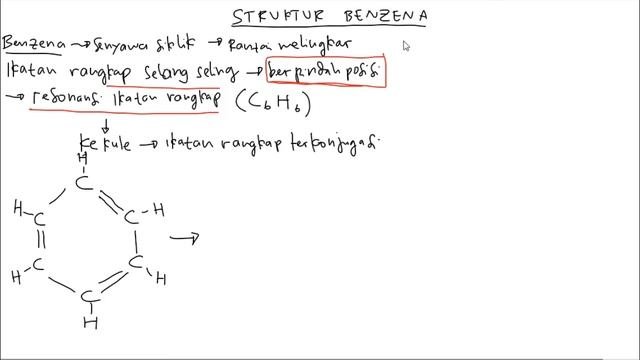 STRUKTUR BENZENA
Benzena → Senyawa siklik → Rantai melingkar
Ikatan rangkap selang seling → berpindah posisi
→ resonansi ikatan rangkap (C₆H₆)
Kekule → ikatan rangkap terkonjugasi
H
C
H C C H
H C C H
C
H